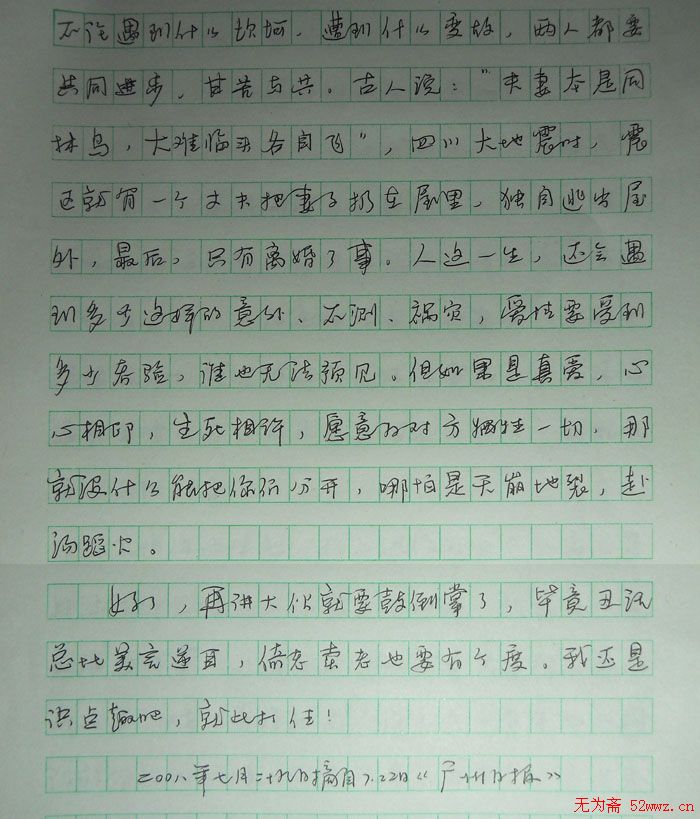 不论遇到什么坎坷,遭到什么变故,两人都要
共同进步,甘苦与共。古人说:“夫妻本是同
林鸟,大难临头各自飞”,四川大地震时,震
区就有一个丈夫把妻子扔在屋里,独自逃出屋
外,最后,只有离婚了事。人这一生,还会遇
到多少这样的意外、不测、祸灾,爱情要受到
多少考验,谁也无法预见。但如果是真爱,心
心相印,生死相许,愿意为对方牺牲一切,那
就没什么能把你们分开,哪怕是天崩地裂,赴
汤蹈火。
好了,再讲大伙就要鼓倒掌了,毕竟丑话
总比美言逆耳,倚老卖老也要有个度。我还是
识点趣吧,就此打住!
二〇〇八年七月二十九日摘自7.22日《广州日报》
无为斋 52wwz.cn